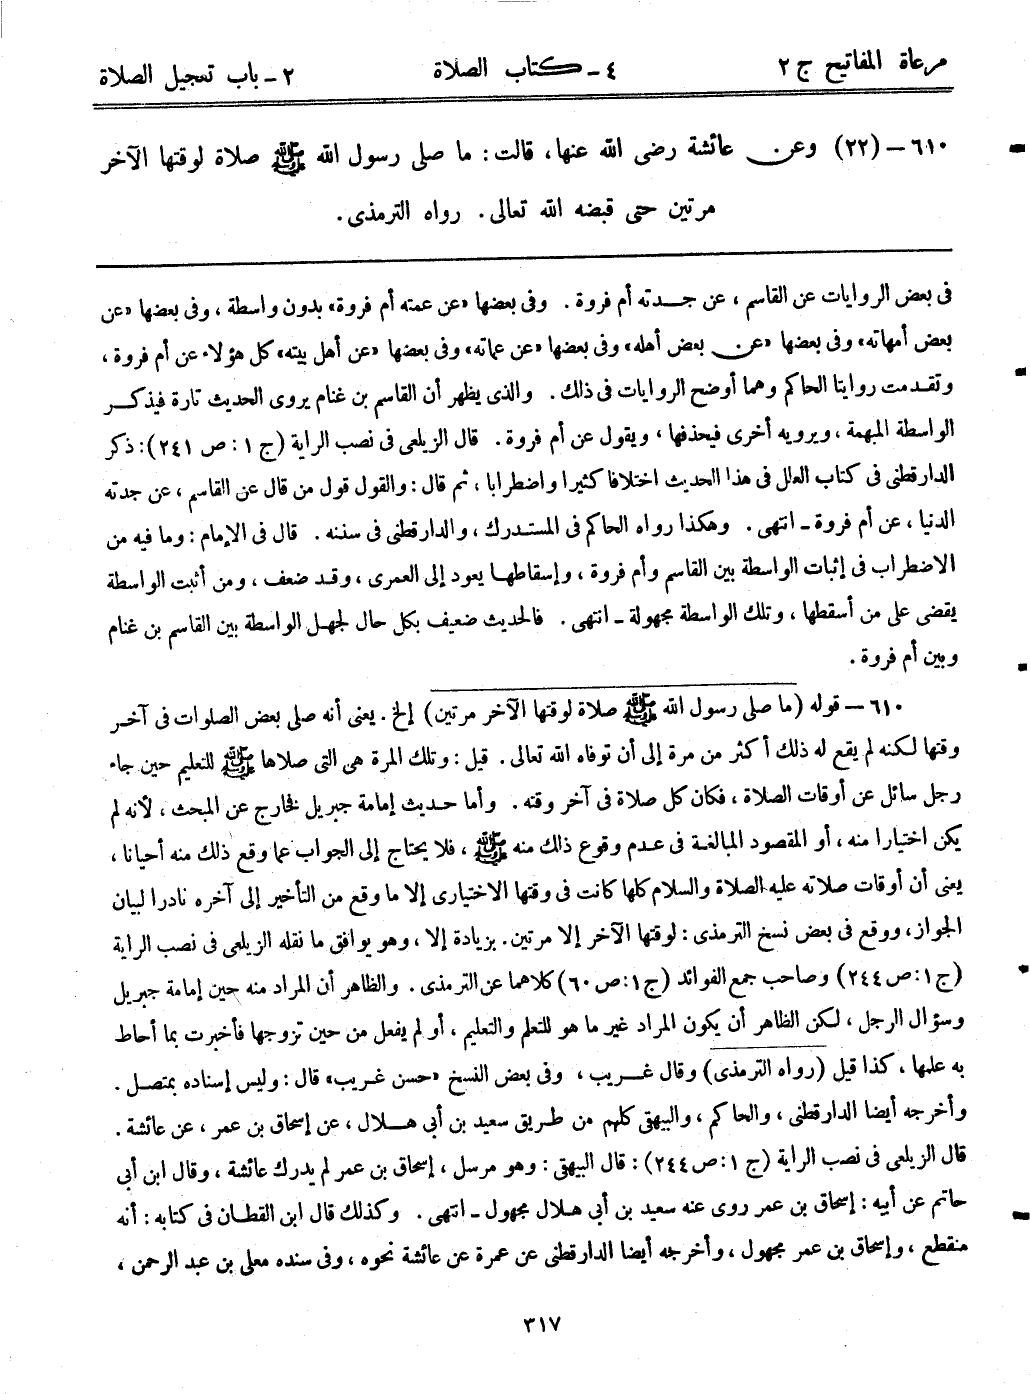 مرعاة المفاتيح ج ٢ ٤ – كتاب الصلاة ٢ – باب تعجيل الصلاة
٦١٠ – (٢٢) وعن عائشة رضى الله عنها، قالت: ما صلى رسول الله ﷺ صلاة لوقتها الآخر
مرتين حتى قبضه الله تعالى. رواه الترمذى.
فى بعض الروايات عن القاسم، عن جدته أم فروة. وفى بعضها «عن عمته أم فروة» بدون واسطة، وفى بعضها «عن
بعض أمهاته» وفى بعضها «عن بعض أهله» وفى بعضها «عن عماته» وفى بعضها «عن أهل بيته» كل هؤلاء عن أم فروة،
وتقدمت روايتا الحاكم وهما أوضح الروايات فى ذلك. والذى يظهر أن القاسم بن غنام يروى الحديث تارة فيذكر
الواسطة المبهمة، ويرويه أخرى فيحذفها، ويقول عن أم فروة. قال الزيلعى فى نصب الراية (ج ١: ص ٢٤١): ذكر
الدارقطنى فى كتاب العلل فى هذا الحديث اختلافا كثيرا واضطرابا، ثم قال: والقول قول من قال عن القاسم، عن جدته
الدنيا، عن أم فروة – انتهى. وهكذا رواه الحاكم فى المستدرك، والدارقطنى فى سننه. قال فى الإمام: وما فيه من
الاضطراب فى إثبات الواسطة بين القاسم وأم فروة، وإسقاطها يعود إلى العمرى، وقد ضعف، ومن أثبت الواسطة
يقضى على من أسقطها، وتلك الواسطة مجهولة – انتهى. فالحديث ضعيف بكل حال لجهل الواسطة بين القاسم بن غنام
وبين أم فروة.
٦١٠ – قوله (ما صلى رسول الله ﷺ صلاة لوقتها الآخر مرتين) إلخ. يعنى أنه صلى بعض الصلوات فى آخر
وقتها لكنه لم يقع له ذلك أكثر من مرة إلى أن توفاه الله تعالى. قيل: وتلك المرة هى التى صلاها ﷺ للتعليم حين جاء
رجل سائل عن أوقات الصلاة، فكان كل صلاة فى آخر وقته. وأما حديث إمامة جبريل فخارج عن المبحث، لأنه لم
يكن اختيارا منه، أو المقصود المبالغة فى عدم وقوع ذلك منه ﷺ، فلا يحتاج إلى الجواب عما وقع ذلك منه أحيانا،
يعنى أن أوقات صلاته عليه الصلاة والسلام كلها كانت فى وقتها الاختيارى إلا ما وقع من التأخير إلى آخره نادرا لبيان
الجواز، ووقع فى بعض نسخ الترمذى: لوقتها الآخر إلا مرتين. بزيادة إلا، وهو يوافق ما نقله الزيلعى فى نصب الراية
(ج ١: ص ٢٤٤) وصاحب جمع الفوائد (ج ١: ص ٦٠) كلاهما عن الترمذى. والظاهر أن المراد منه حين إمامة جبريل
وسؤال الرجل، لكن الظاهر أن يكون المراد غير ما هو للتعلم والتعليم، أو لم يفعل من حين تزوجها فأخبرت بما أحاط
به علمها، كذا قيل (رواه الترمذى) وقال غريب، وفى بعض النسخ «حسن غريب» قال: وليس إسناده بمتصل.
وأخرجه أيضا الدارقطنى، والحاكم، والبيهقى كلهم من طريق سعيد بن أبى هلال، عن إسحاق بن عمر، عن عائشة.
قال الزيلعى فى نصب الراية (ج ١: ص ٢٤٤): قال البيهقى: وهو مرسل، إسحاق بن عمر لم يدرك عائشة، وقال ابن أبى
حاتم عن أبيه: إسحاق بن عمر روى عنه سعيد بن أبى هلال مجهول – انتهى. وكذلك قال ابن القطان فى كتابه: أنه
منقطع، وإسحاق بن عمر مجهول، وأخرجه أيضا الدارقطنى عن عمرة عن عائشة نحوه، وفى سنده معلى بن عبد الرحمن،
٣١٧